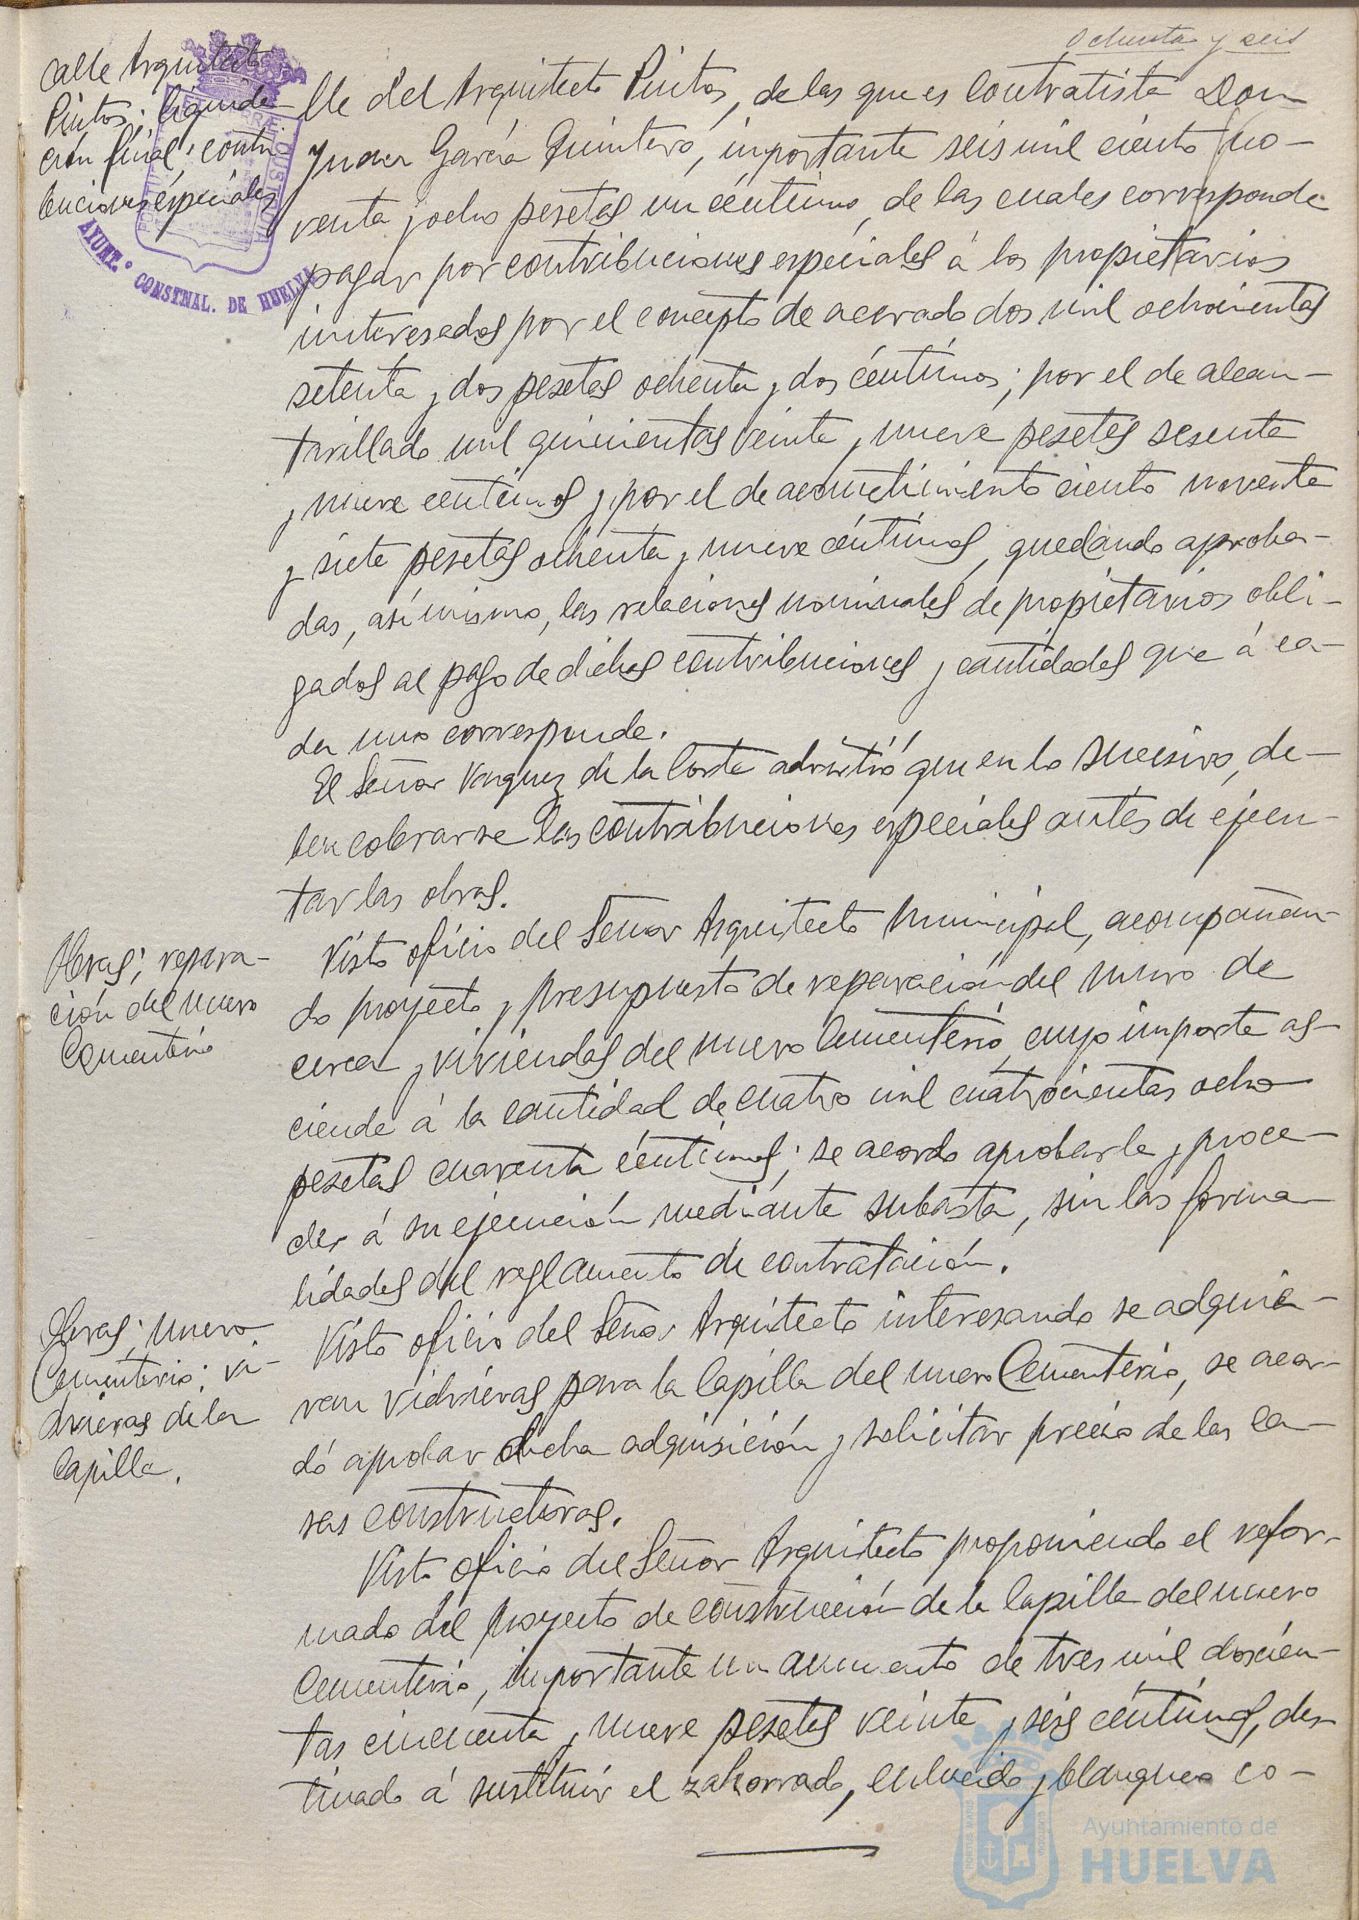 Ochenta y seis
calle Arquitecto
Pintos; liquida-
ción final; contri-
buciones especiales
AYUNT.º CONSTNAL. DE HUELVA
lle del Arquitecto Pintos, de las que es contratista Don
Juan García Quintero, importante seis mil ciento no-
venta y ocho pesetas un céntimo, de las cuales corresponde
pagar por contribuciones especiales á los propietarios
interesados por el concepto de acerado dos mil ochocientas
setenta y dos pesetas ochenta y dos céntimos; por el de alcan-
tarillado mil quinientas veinte y nueve pesetas sesenta
y nueve centimos y por el de acometimiento ciento noventa
y siete pesetas ochenta y nueve céntimos, quedando aproba-
das, asímismo, las relaciones nominales de propietarios obli-
gados al pago de dichas contribuciones y cantidades que á ca-
da uno corresponde.
El Señor Vazquez de la Corte advirtió que en lo sucesivo, de-
ben cobrarse las contribuciones especiales antes de ejecu-
tar las obras.
Obras; repara-
ción del nuevo
Cementerio
Visto oficio del Señor Arquitecto Municipal, acompañan-
do proyecto y presupuesto de reparación del muro de
cerca y viviendas del nuevo Cementerio, cuyo importe as-
ciende á la cantidad de cuatro mil cuatrocientas ocho
pesetas cuarenta céntimos; se acordo aprobarle y proce-
der á su ejecución mediante subasta, sin las forma-
lidades del reglamento de contratación.
Obras; nuevo
Cementerio; vi-
drieras de la
Capilla.
Visto oficio del Señor Arquitecto interesando se adquie-
ran vidrieras para la Capilla del nuevo Cementerio, se acor-
dó aprobar dicha adquisición y solicitar precio de las ca-
sas constructoras.
Visto oficio del Señor Arquitecto proponiendo el refor-
mado del proyecto de construcción de la Capilla del nuevo
Cementerio, importante un aumento de tres mil doscien-
tas cincuenta y nueve pesetas veinte y seis céntimos, des-
tinado á sustituir el zahorrado, enlucido y blanqueo co-
Ayuntamiento de
HUELVA